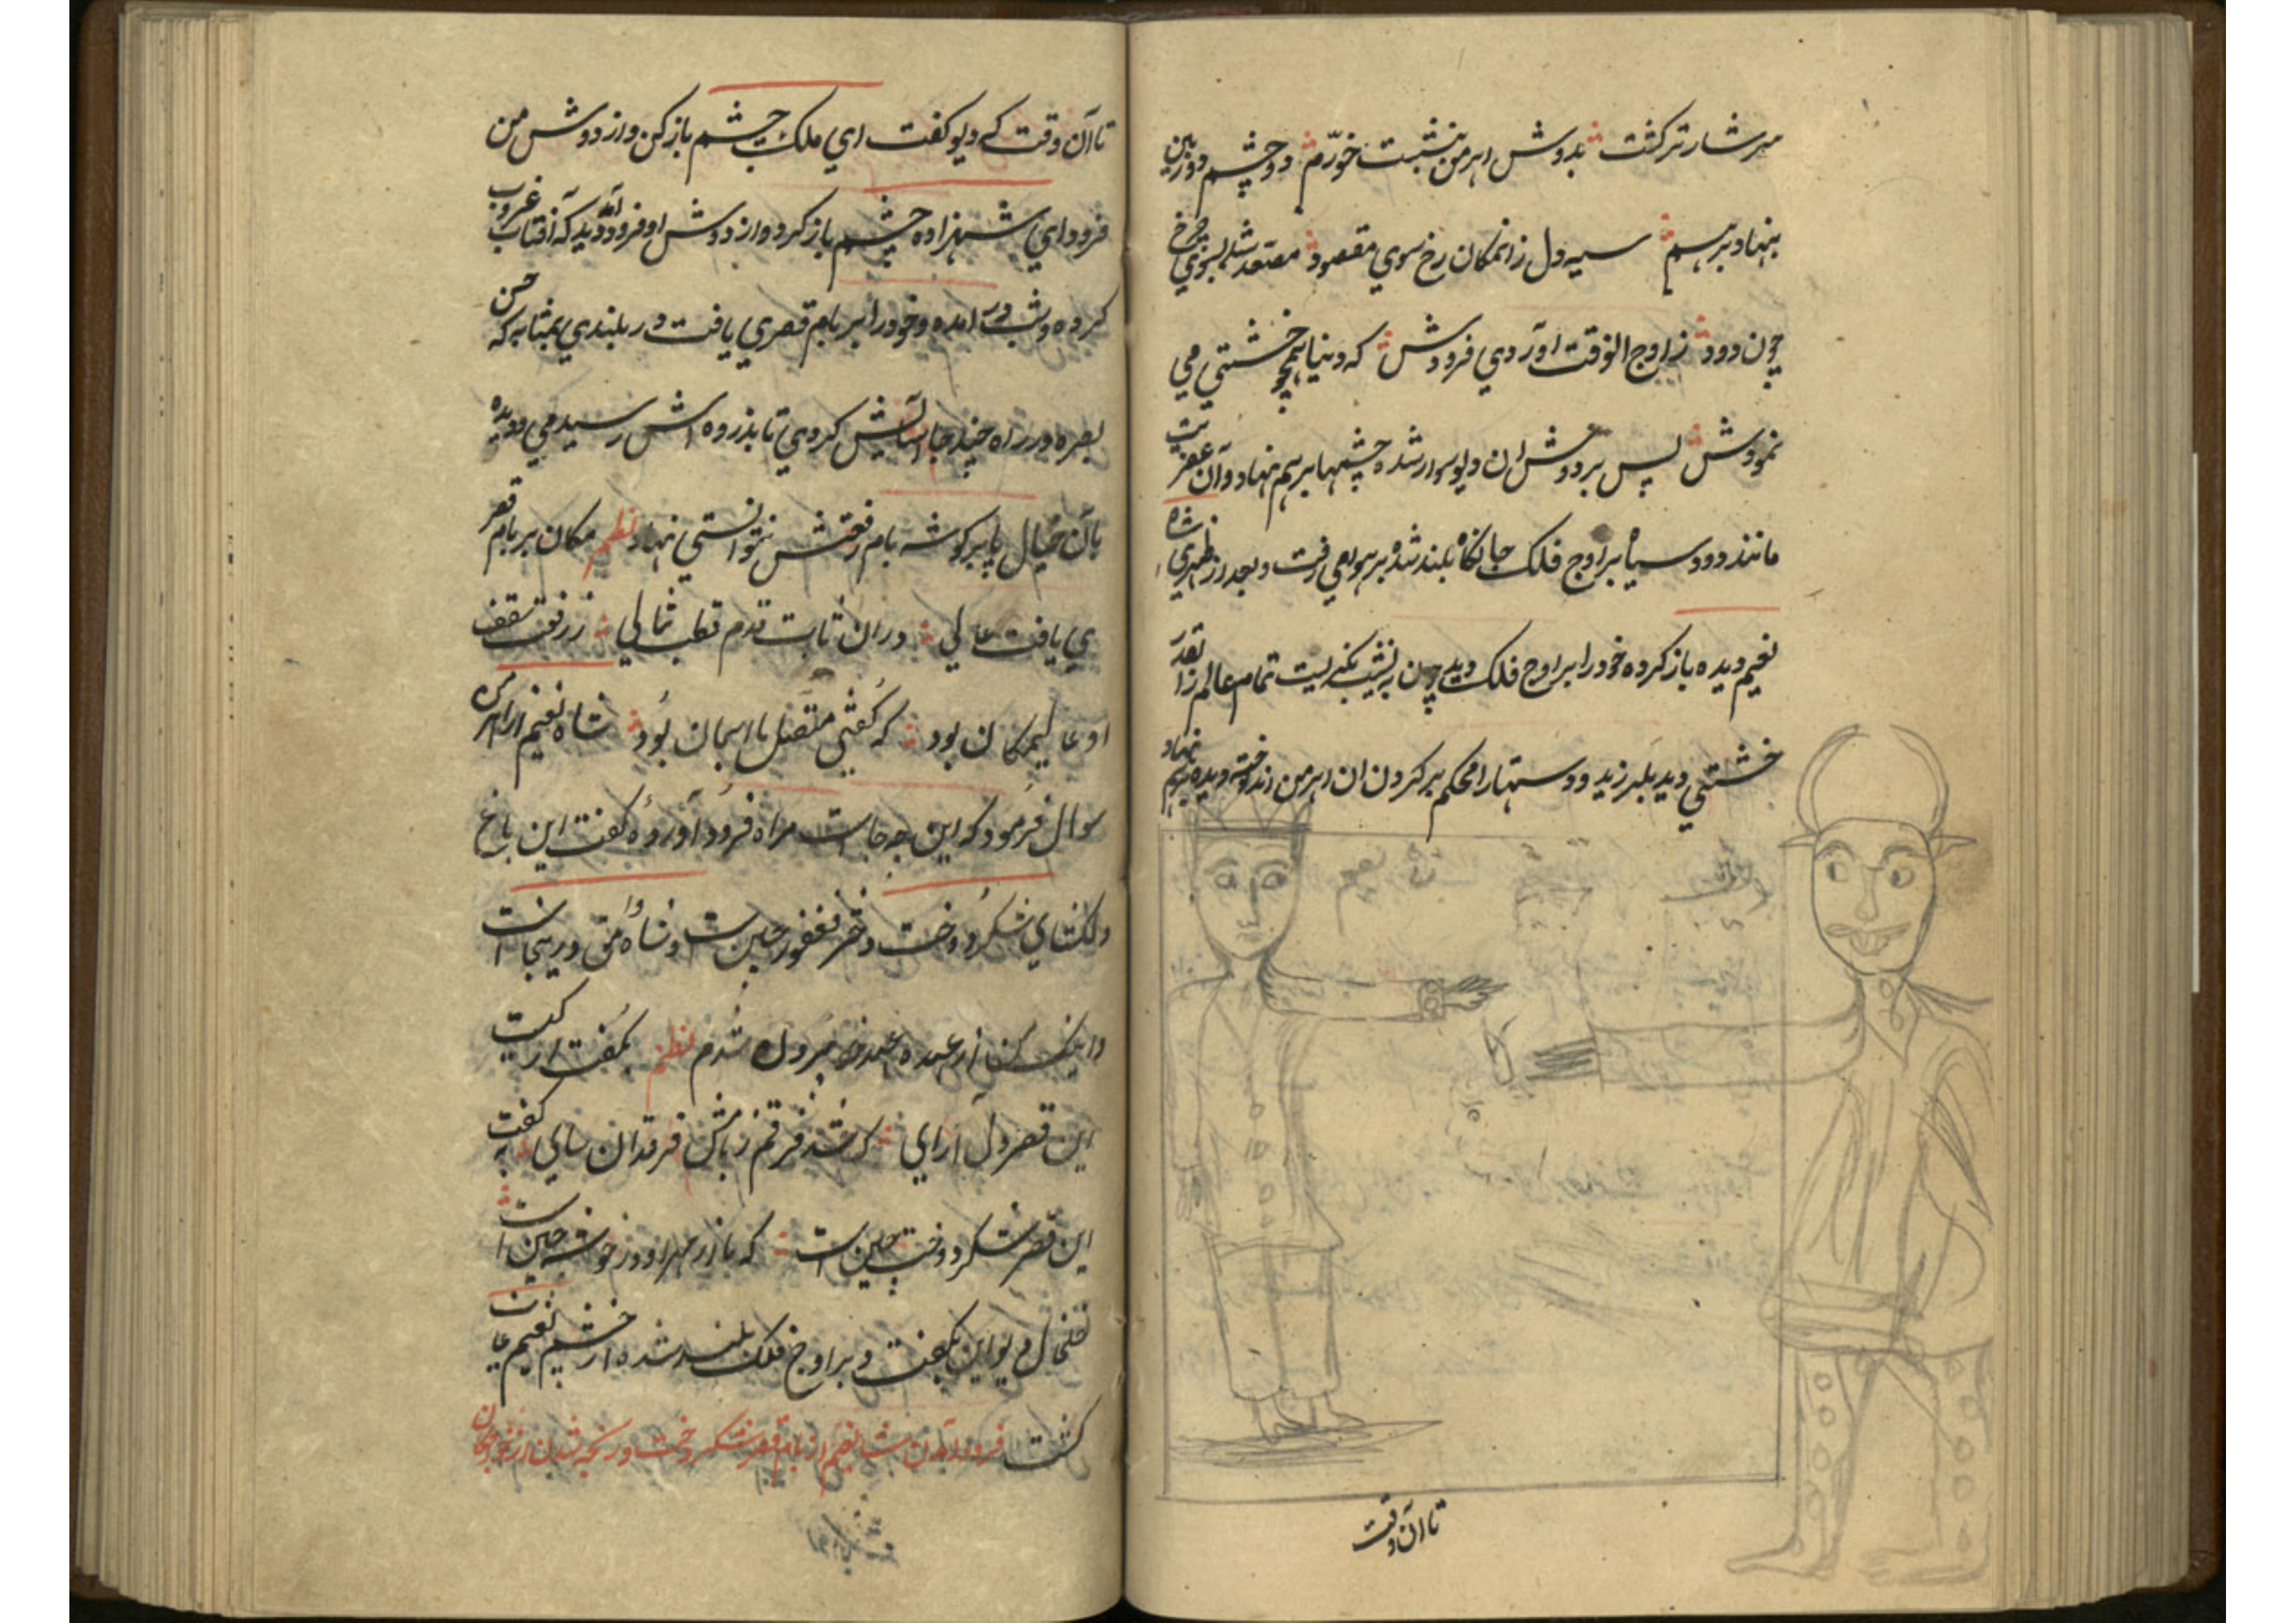 سرشار تر کشت بدوش اهرمن بنشست خورم دو چشم دوربین
بنهاد برهم سیه دل زانمکان رخ سوی مقصود مصعد شد بسوی چرخ
چون دود ز اوج الوقت اوردی فرودش که دنیا همچو خشتی می
نمودش پس بردوش ان دیو سوار شده چشمها برهم نهاد و آن عفریت
مانند دود سیاه بر اوج فلک جانکاه بلند شده بر هوا می رفت و بعد از شاه
نعیم دیده باز کرده خود را بر اوج فلک دید چون به نشیب نکریست تمام عالم را بقدر
خشتی دید بلرزید و دستها را محکم بر کردن ان اهرمن انداخته دیده برهم نهاد
شاه نعیم
تا آن وقت
تا آن وقت که دیو کفت ای ملک چشم باز کن و از دوش من
فرود ای شهزاده چشم باز کرد و از دوش او فرود آمد دید که آفتاب غروب
کرده و شب در امده و خود را بر بام قصری یافت در بلندی بمثابه که حس
بصره در راه چند جا آسایش کردی تا بذروه اش رسیدمی و دیده
بان خیال پا بر کوشه بام رفعتش نتوانستی نهاد نظم مکان بر بام قصر
ی یافت عالی دران ثابت قدم قطب شمالی ز رفعت سقف
او عالیمکان بود که کفتی متصل با اسمان بود شاه نعیم از اهرمن
سوال فرمود که این چه جاست مراه فرود آورده کفت این باغ
دلکشای شکر دخت دختر فغفور چین ست و شاه دامق درینجا است
و اینک من از عهده عهد خود برون شدم نظم بکفت از کیست
این قصر دل ارای که شد فرقم ز بامش فرقدان سای کفت به
این قصر شکر دخت چین است که ماه از مهر او در خوشه چین است
خلخال دیو این بکفت و بر اوج فلک بلند شده از چشم نعیم غایب
کشت فرود آمدن شاه نعیم از بام قصر شکر دخت و رنجه شدن از